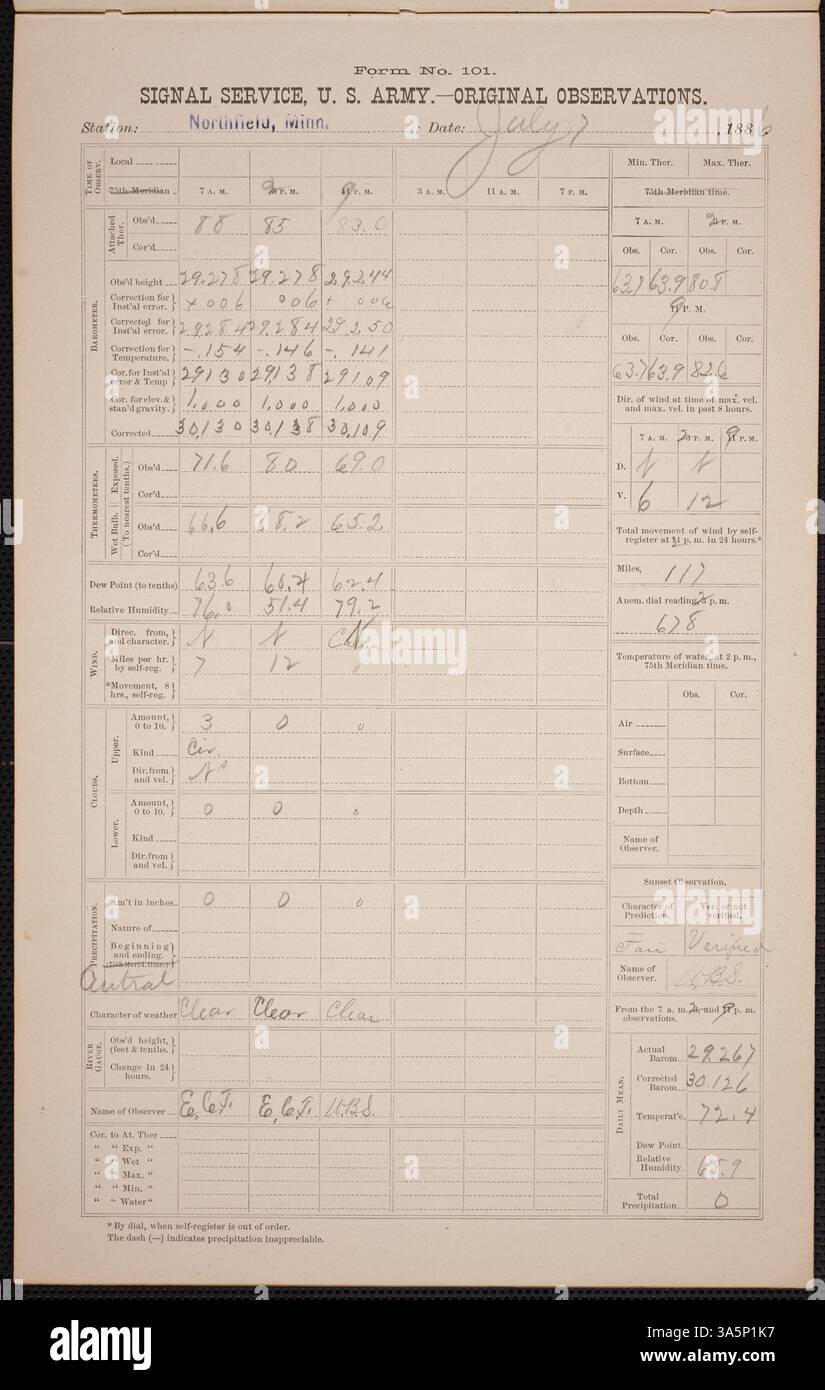 Form No. 101.
SIGNAL SERVICE, U. S. ARMY.—ORIGINAL OBSERVATIONS.
Station: Northfield, Minn. : Date: July 7, 1886
TIME OF OBSERV.
Local
75th Meridian 7 A. M. 2 P. M. 9 P. M. 3 A.M. 11 A.M. 7 P.M.
Attached Ther.
Obs'd 88 85 83.0
Cor'd
BAROMETER.
Obs'd height 29.278 29.278 29.244
Correction for Inst'al error. +006 006 + 006
Corrected for Inst'al error. 29.284 29.284 29.250
Correction for Temperature. -.154 -.146 -.141
Cor. for Inst'al error & Temp 29130 29,138 29109
Cor. for elev. & stan'd gravity. 1,000 1,000 1,000
Corrected 30,130 30,138 30,109
THERMOMETERS.
(To nearest tenths.)
Exposed.
Obs'd 71.6 80 69.0
Cor'd
Wet Bulb.
Obs'd 66.6 68.2 65.2
Cor'd
Dew Point (to tenths) 63.6 62.4
Relative Humidity 76.0 51.4 79.2
WIND.
Direc. from, and character. N N Calm
Miles per hr. by self-reg. 7 12 0
*Movement, 8 hrs., self-reg.
CLOUDS.
Upper.
Amount, 0 to 10. 3 0 0
Kind Cir.
Dir. from and vel. N
Lower.
Amount, 0 to 10. 0 0 0
Kind
Dir. from and vel.
PRECIPITATION.
Am't in inches 0 0 0
Nature of
Beginning and ending. (75th Merid. time.)
Central
Character of weather Clear Clear Clear
RIVER GAUGE.
Obs'd height, (feet & tenths.)
Change in 24 hours.
Name of Observer E.C.F. E.C.F. W.B.S.
Cor. to At. Ther
" " Exp. "
" " Wet "
" " Max. "
" " Min. "
" " Water "
* By dial, when self-register is out of order.
The dash (—) indicates precipitation inappreciable.
Min. Ther. Max. Ther.
75th Meridian time.
7 A. M. 2 P. M.
Obs. Cor. Obs. Cor.
63.7 63.9 80.8
9 P. M.
Obs. Cor. Obs. Cor.
63.7 63.9 82.6
Dir. of wind at time of max. vel. and max. vel. in past 8 hours.
7 A. M. 2 P. M. 9 P. M.
D. N N
V. 6 12
Total movement of wind by self-register at 2 p. m. in 24 hours.*
Miles, 117
Anem. dial reading, 2 p. m.
678
Temperature of water, at 2 p. m., 75th Meridian time.
Obs. Cor.
Air
Surface
Bottom
Depth
Name of Observer.
Sunset Observation.
Character of Prediction. Ver. or not verified.
Fair Verified
Name of Observer. W.B.S.
From the 7 a. m., 2, and 9 p. m. observations.
DAILY MEAN.
Actual Barom. 29.267
Corrected Barom. 30.126
Temperat'e. 72.4
Dew Point.
Relative Humidity. 68.9
Total Precipitation. 0
alamy
Image ID: 3A5P1K7
www.alamy.com